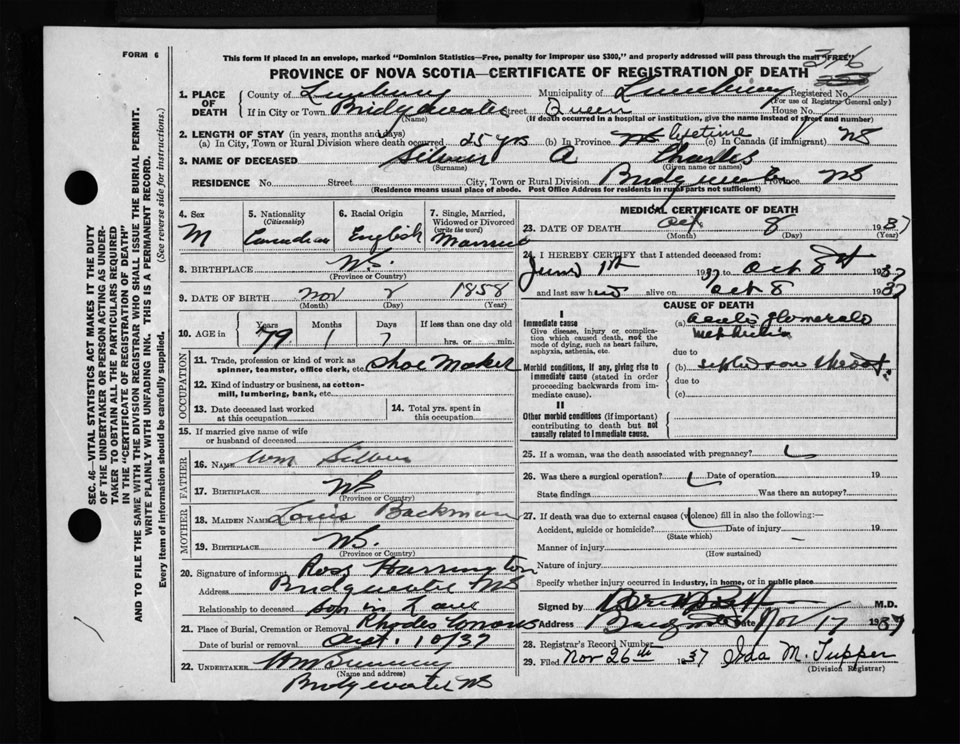 FORM 6
This form if placed in an envelope, marked "Dominion Statistics—Free, penalty for improper use $300," and properly addressed will pass through the mail "FREE"
PROVINCE OF NOVA SCOTIA—CERTIFICATE OF REGISTRATION OF DEATH
1. PLACE OF DEATH County of Municipality of Lunenburg Registered No.
(For use of Registrar General only)
If in City or Town Bridgewater Street Queen House No.
(Name) (If death occurred in a hospital or institution, give the name instead of street and number)
2. LENGTH OF STAY (in years, months and days)
(a) In City, Town or Rural Division where death occurred 25 yrs (b) In Province lifetime (c) In Canada (if immigrant) NS
3. NAME OF DECEASED A Charles
(Surname) (Given name or names)
RESIDENCE No. Street City, Town or Rural Division Bridgewater Province NS
(Residence means usual place of abode. Post Office Address for residents in rural parts not sufficient)
4. Sex
M
5. Nationality
(Citizenship)
Canadian
6. Racial Origin
English
7. Single, Married, Widowed or Divorced
(write the word)
Married
8. BIRTHPLACE NS.
(Province or Country)
9. DATE OF BIRTH Nov 2 1858
(Month) (Day) (Year)
10. AGE in Years Months Days If less than one day old
79 1 7 hrs. or min.
OCCUPATION
11. Trade, profession or kind of work as spinner, teamster, office clerk, etc. Shoe Maker
12. Kind of industry or business, as cotton-mill, lumbering, bank, etc.
13. Date deceased last worked at this occupation
14. Total yrs. spent in this occupation
15. If married give name of wife or husband of deceased
FATHER
16. NAME Wm
17. BIRTHPLACE NS
(Province or Country)
MOTHER
18. MAIDEN NAME Louis Backman
19. BIRTHPLACE NS.
(Province or Country)
20. Signature of informant Ross Harrington
Address Bridgewater NS
Relationship to deceased Son in Law
21. Place of Burial, Cremation or Removal Rhodes
Date of burial or removal 10/37
22. UNDERTAKER
(Name and address)
Bridgewater NS
MEDICAL CERTIFICATE OF DEATH
23. DATE OF DEATH Oct 8 1937
(Month) (Day) (Year)
24. I HEREBY CERTIFY that I attended deceased from:
June 1937 to Oct 8 1937
and last saw h alive on Oct 8 1937
CAUSE OF DEATH
I
Immediate cause
Give disease, injury or complication which caused death, not the mode of dying, such as heart failure, asphyxia, asthenia, etc.
(a)
due to
Morbid conditions, if any, giving rise to immediate cause (stated in order proceeding backwards from immediate cause).
(b)
due to
(c)
II
Other morbid conditions (if important) contributing to death but not causally related to immediate cause.
25. If a woman, was the death associated with pregnancy?
26. Was there a surgical operation? Date of operation 19
State findings Was there an autopsy?
27. If death was due to external causes (violence) fill in also the following:—
Accident, suicide or homicide? Date of injury 19
(State which)
Manner of injury
(How sustained)
Nature of injury
Specify whether injury occurred in industry, in home, or in public place
Signed by M.D.
Address Date Nov 17 1937
28. Registrar's Record Number
29. Filed Nov 26th 1937 Ida M. Tupper
(Division Registrar)
SEC. 46—VITAL STATISTICS ACT MAKES IT THE DUTY
OF THE UNDERTAKER OR PERSON ACTING AS UNDER-
TAKER TO OBTAIN ALL THE PARTICULARS REQUIRED
IN THE "CERTIFICATE OF REGISTRATION OF DEATH"
AND TO FILE THE SAME WITH THE DIVISION REGISTRAR WHO SHALL ISSUE THE BURIAL PERMIT.
WRITE PLAINLY WITH UNFADING INK. THIS IS A PERMANENT RECORD.
Every item of information should be carefully supplied. (See reverse side for instructions.)